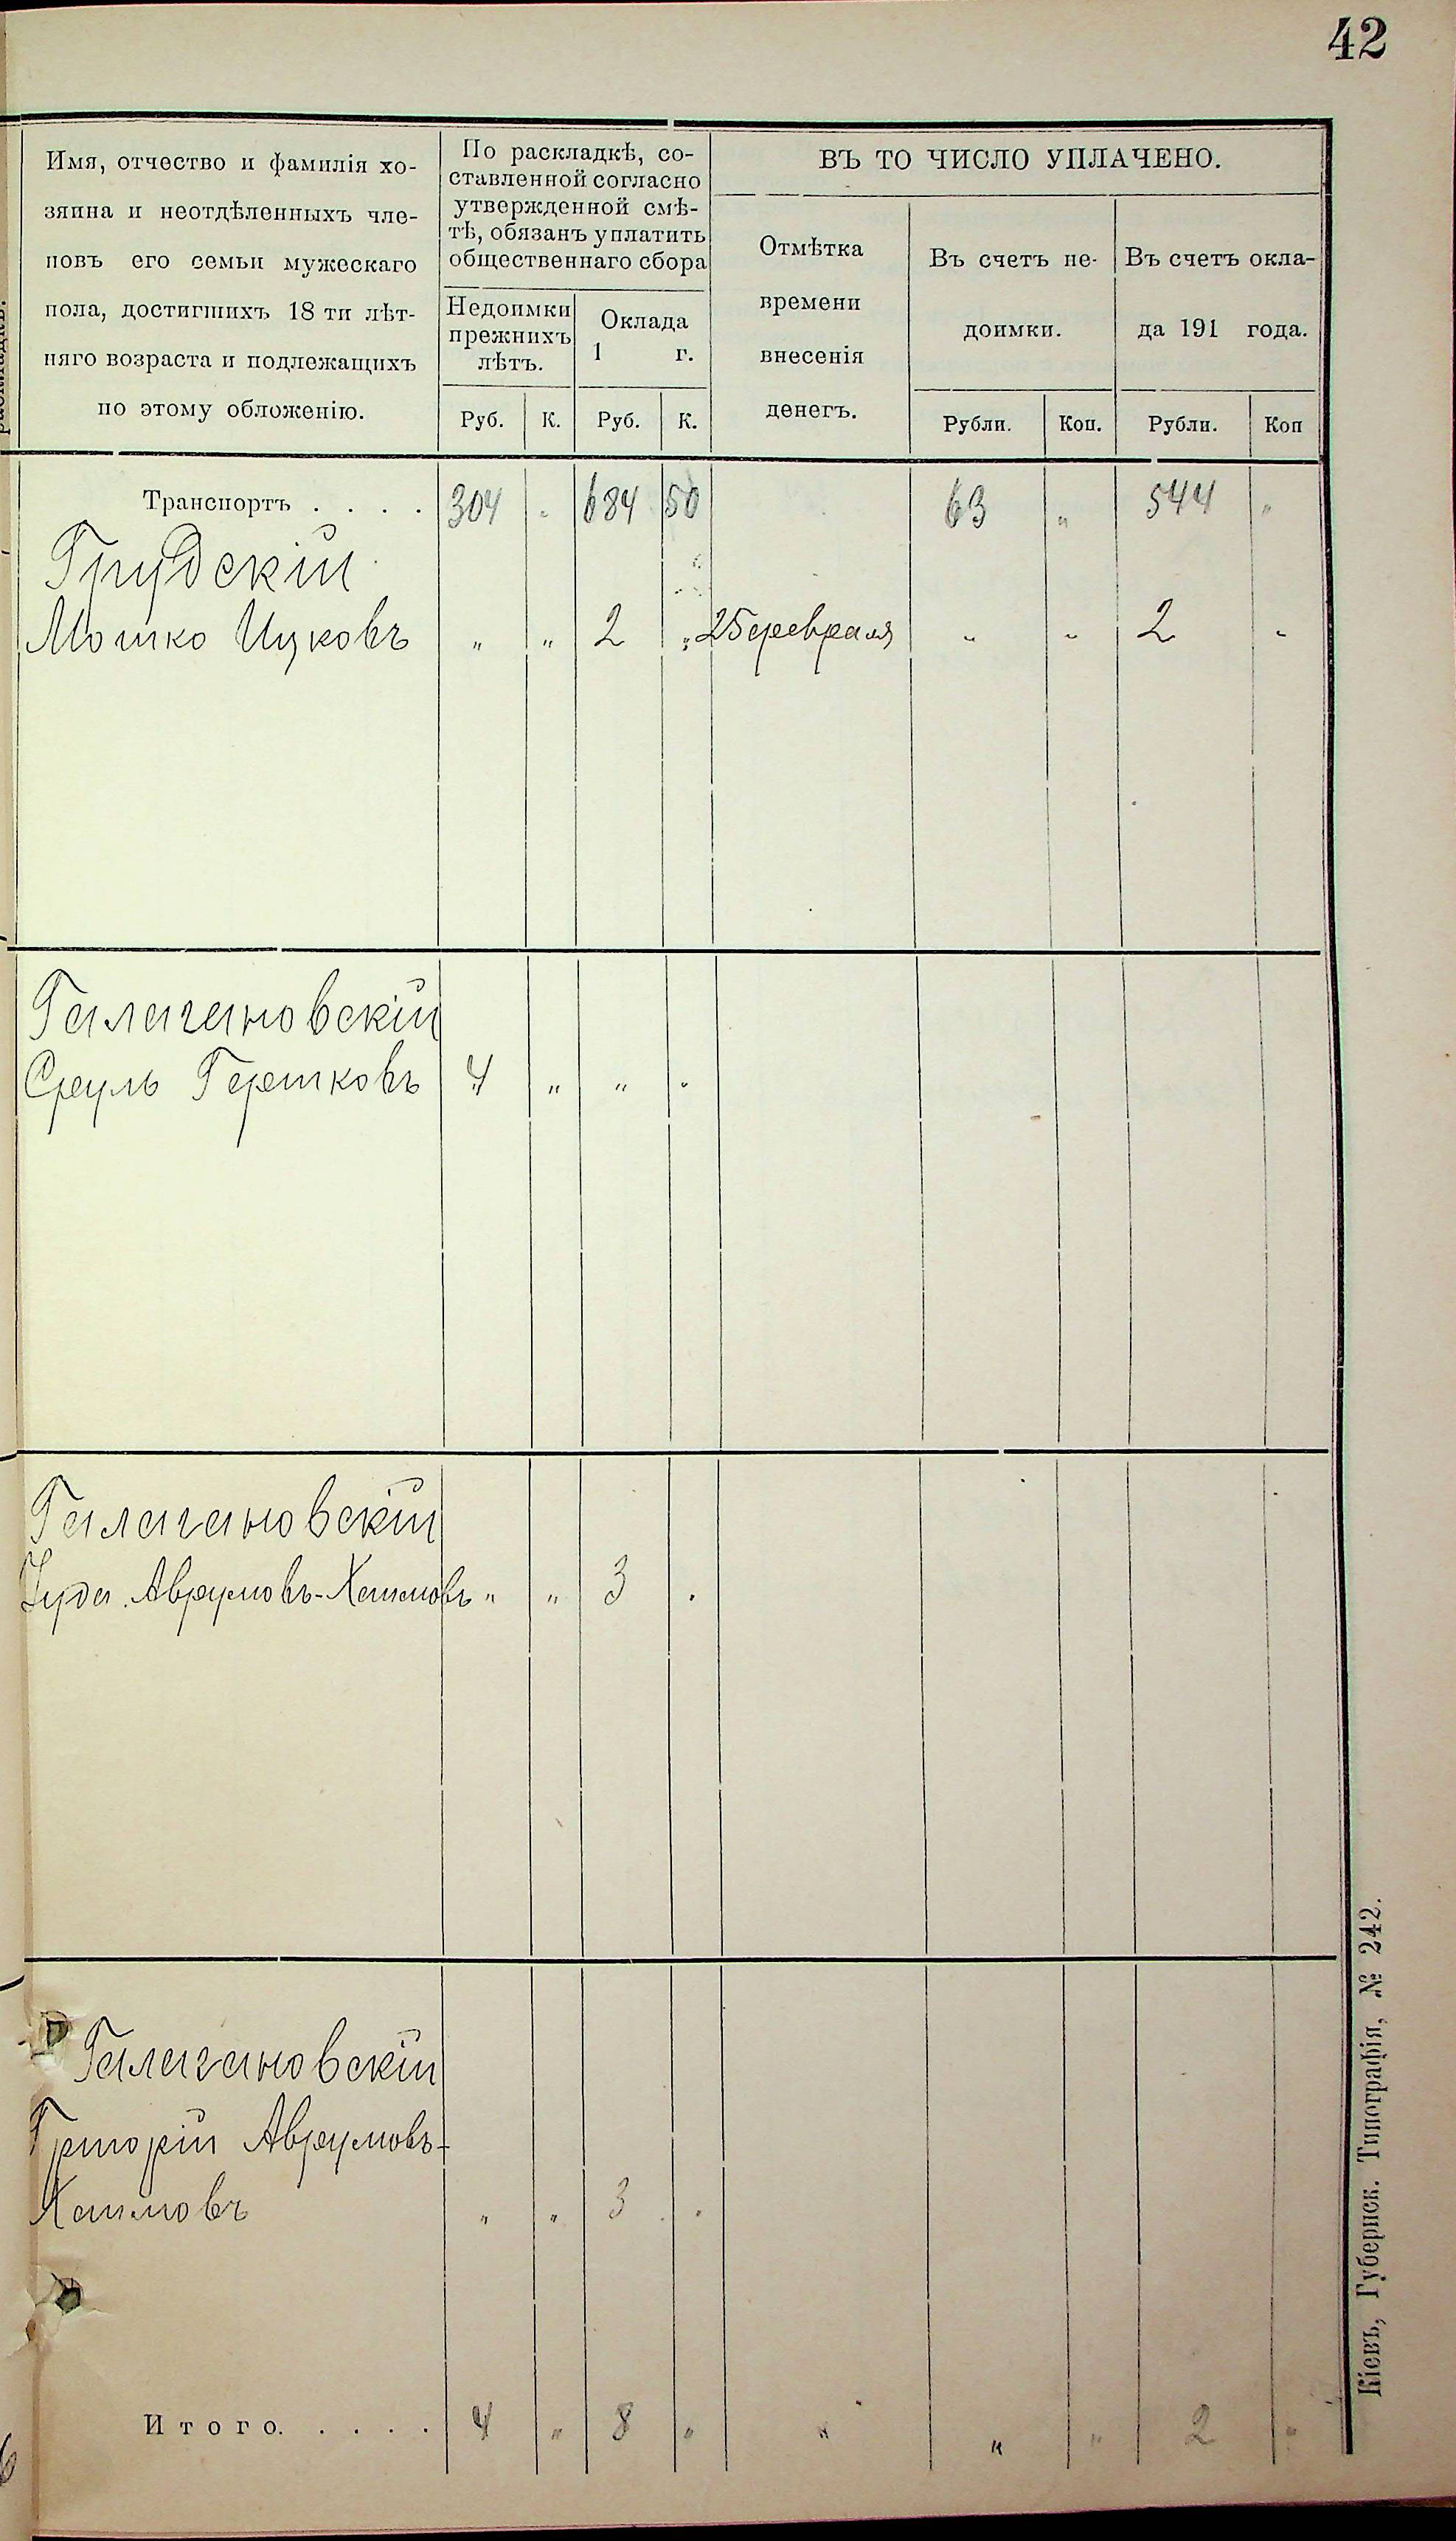 42
Имя, отчество и фамилія хо-
зяина и неотдѣленныхъ чле-
новъ его семьи мужескаго
пола, достигшихъ 18 ти лѣт-
няго возраста и подлежащихъ
по этому обложенію.
По раскладкѣ, со-
ставленной согласно
утвержденной смѣ-
тѣ, обязанъ уплатить
общественнаго сбора
Недоимки
прежнихъ
лѣтъ.
Оклада
1 г.
Руб. К. Руб. К.
ВЪ ТО ЧИСЛО УПЛАЧЕНО.
Отмѣтка
времени
внесенія
денегъ.
Въ счетъ не-
доимки.
Въ счетъ окла-
да 191 года.
Рубли. Коп. Рубли. Коп
Транспортъ . . . . 304 „ 684 50 63 „ 544 „
Грудскій
Мошко Ицковъ „ „ 2 „ 25 февраля „ „ 2 „
Галагановскій
Сруль Гершковъ 4 „ „ „
Галагановскій
Іуда Аврумовъ-Хаимовъ „ „ 3 „
Галагановскій
Григорій Аврумовъ-
Хаимовъ „ „ 3 „
Итого. . . . . 4 „ 8 „ „ „ „ 2 „
Кіевъ, Губернск. Типографія, № 242.